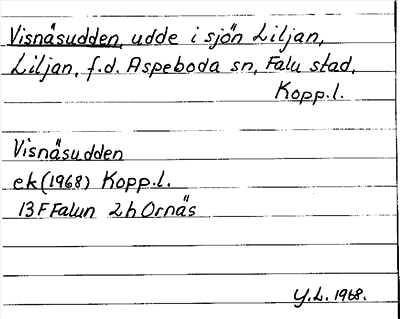 Visnäsudden, udde i sjön Liljan,
Liljan, f.d. Aspeboda sn, Falu stad,
Kopp.l.
Visnäsudden
ek (1968) Kopp.l.
13 F Falun 2h Ornäs
Y.L. 1968.